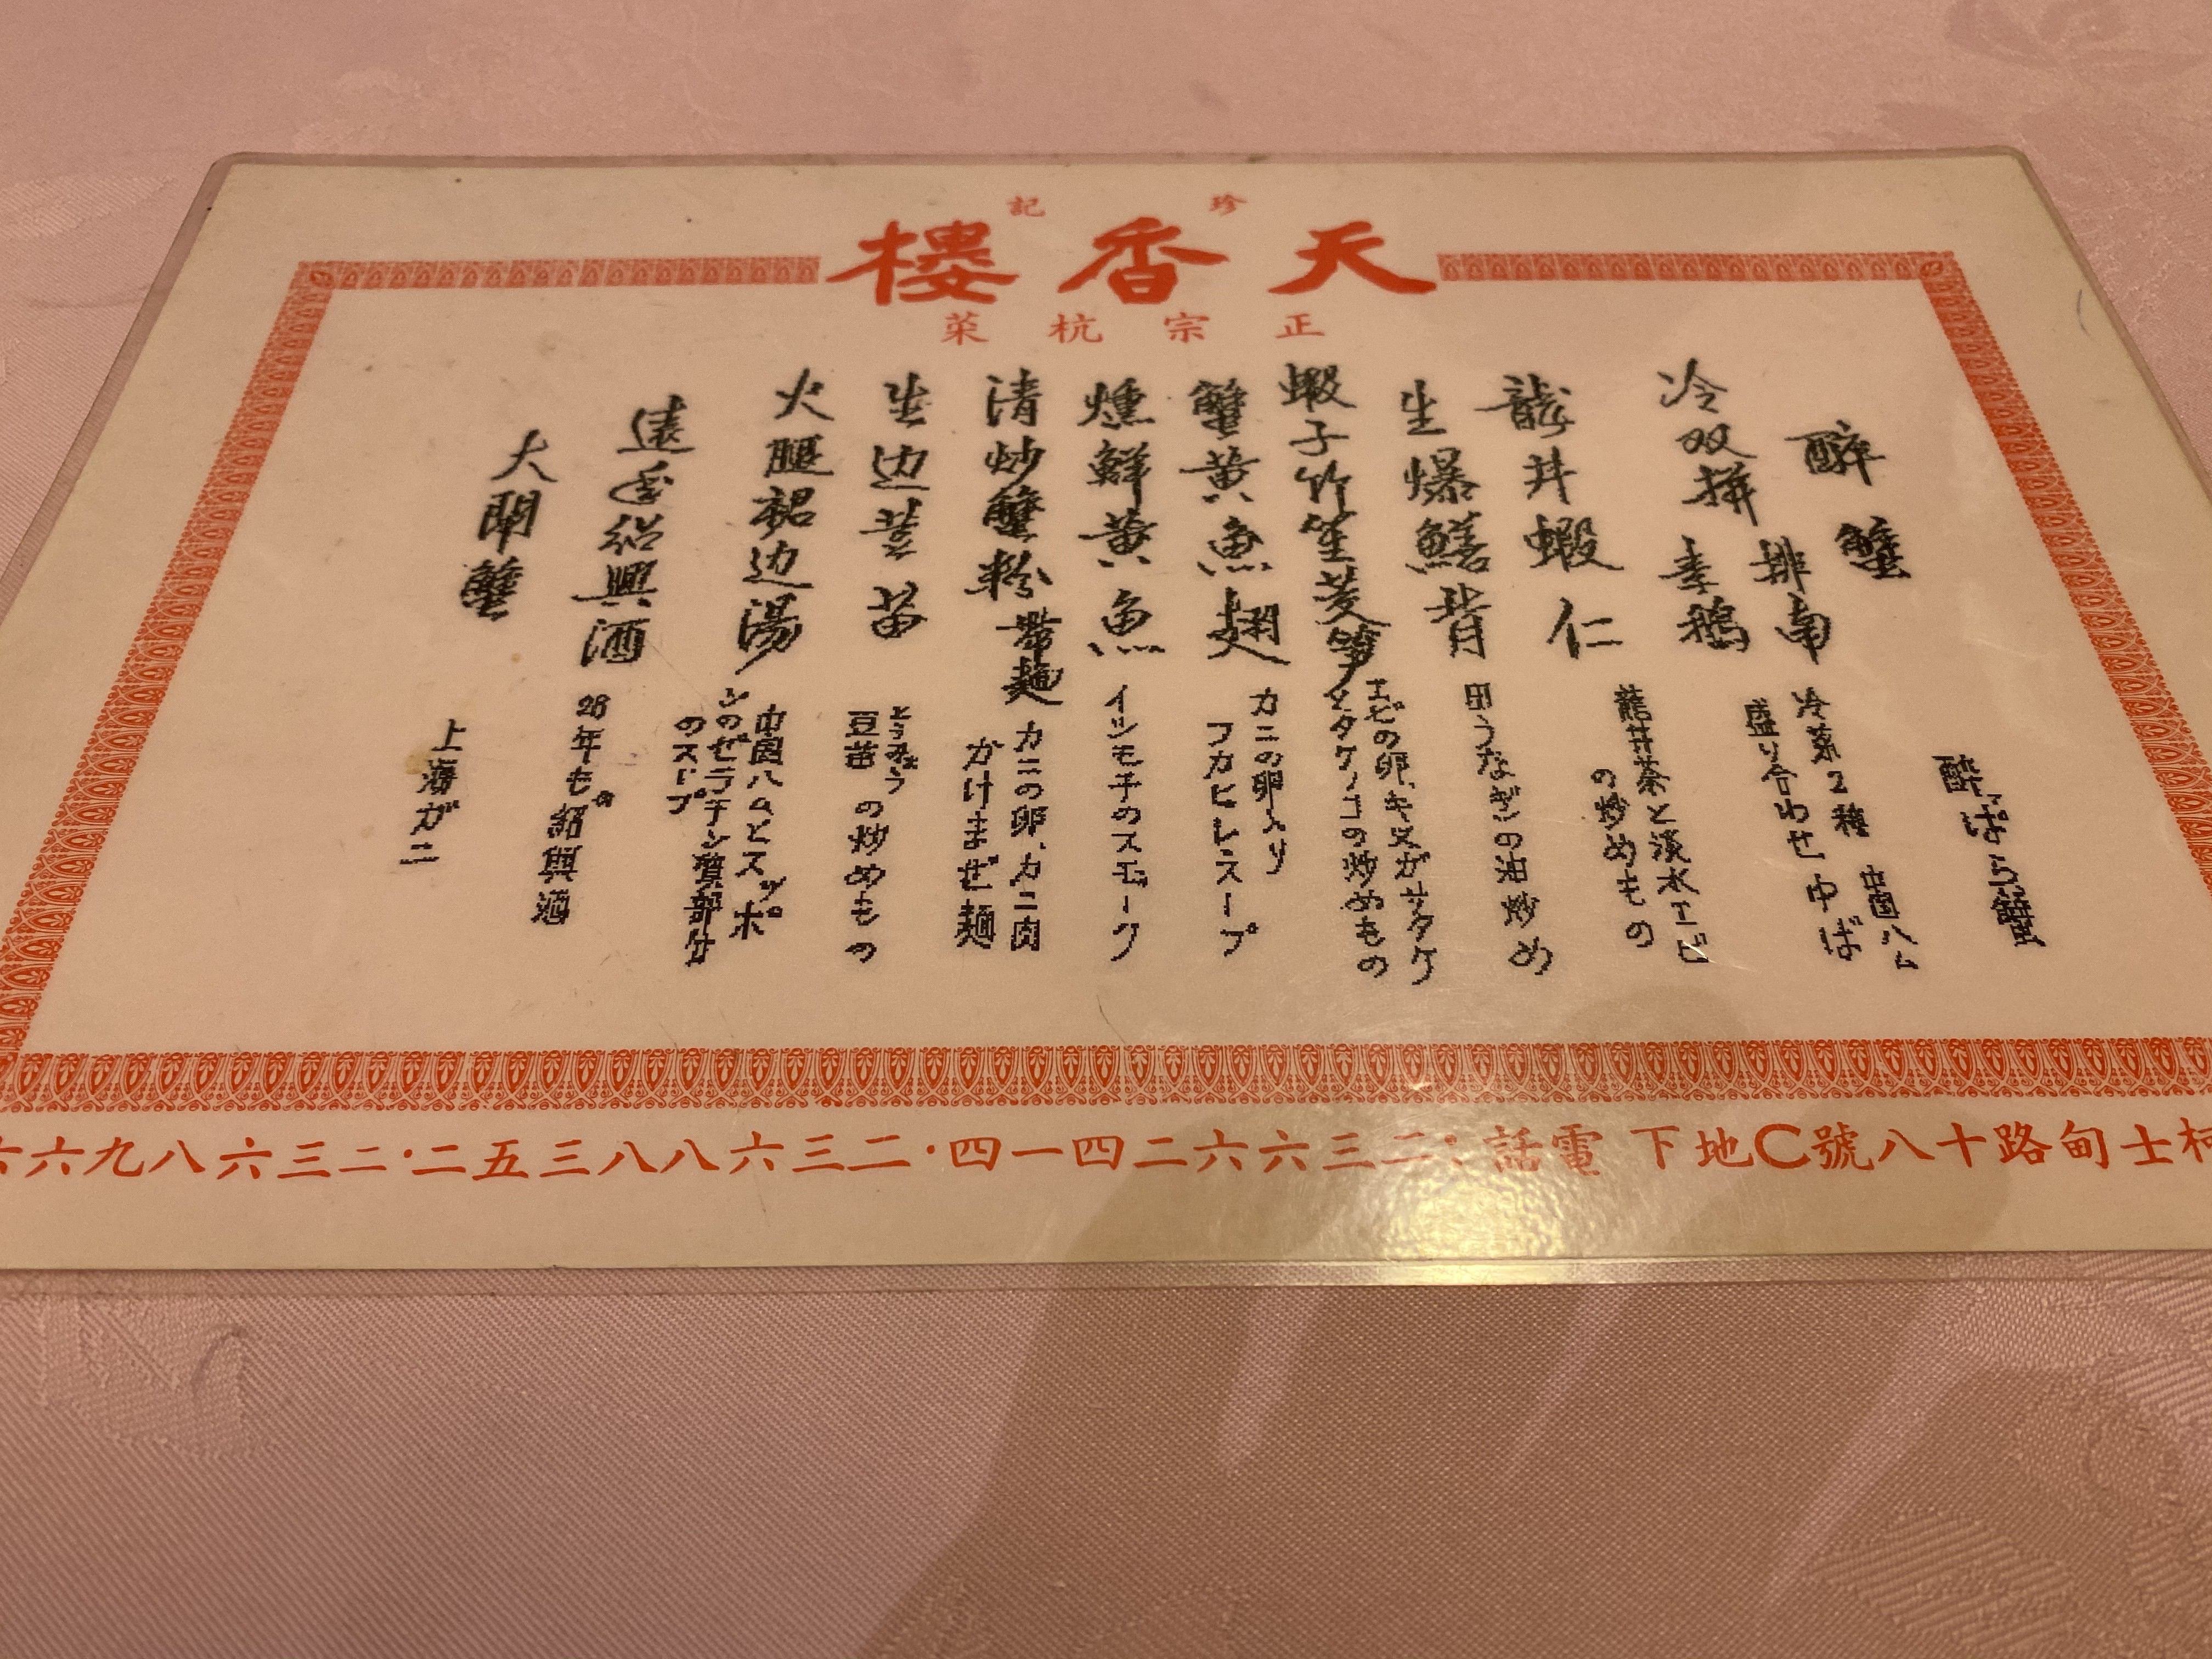 珍記
天香樓
正宗杭菜
醉蟹
酔っぱらい蟹
冷双拼 排南 素鵝
冷菜2種 中国ハム
盛り合わせ ゆば
龍井蝦仁
龍井茶と淡水エビ
の炒めもの
生爆鱔背
田うなぎの油炒め
蝦子竹笙菱筍
エビの卵、キヌガサタケ
とタケノコの炒めもの
蟹黄魚翅
カニの卵入り
フカヒレスープ
燻鮮黄魚
イシモチのスモーク
清炒蟹粉帶麺
カニの卵、カニ肉
かけまぜ麺
生边荳苗
とうみょう
豆苗の炒めもの
火腿裙边湯
中国ハムとスッポ
ンのゼラチン質部分
のスープ
遠年紹興酒
28年もの紹興酒
大閘蟹
上海ガニ
柯士甸路十八號C地下 電話:二三六六二四一四·二三六八八三五二·二三六八九六六